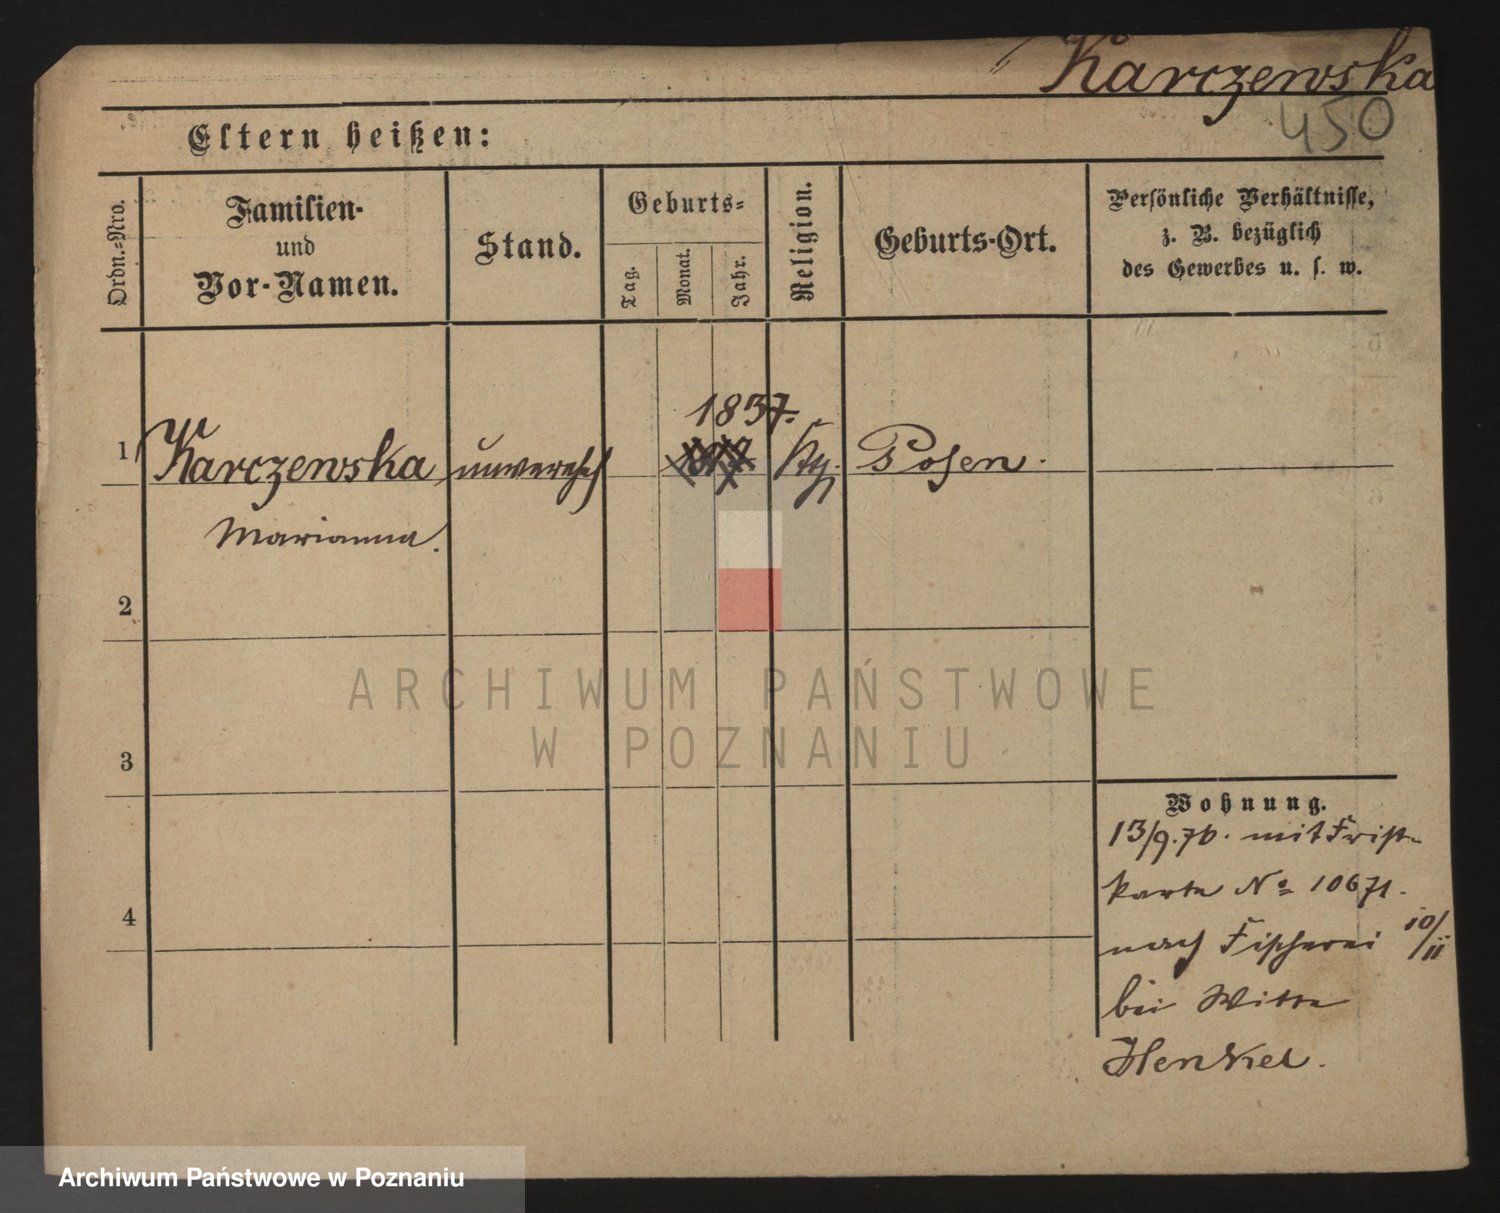 Karczewska
450
Eltern heißen:
Ordn.-Nro.
Familien-
und
Vor-Namen.
Stand.
Geburts-
Tag.
Monat.
Jahr.
Religion.
Geburts-Ort.
Persönliche Verhältnisse,
z. B. bezüglich
des Gewerbes u. s. w.
1837.
1 Karczewska unverehel Posen.
Marianna.
2
3
4
Wohnung.
13/9.76. mit Frist-
karte No 10671.
nach Fischerei 10/11
bei Witwe
Henkel.
ARCHIWUM PAŃSTWOWE
W POZNANIU
Archiwum Państwowe w Poznaniu